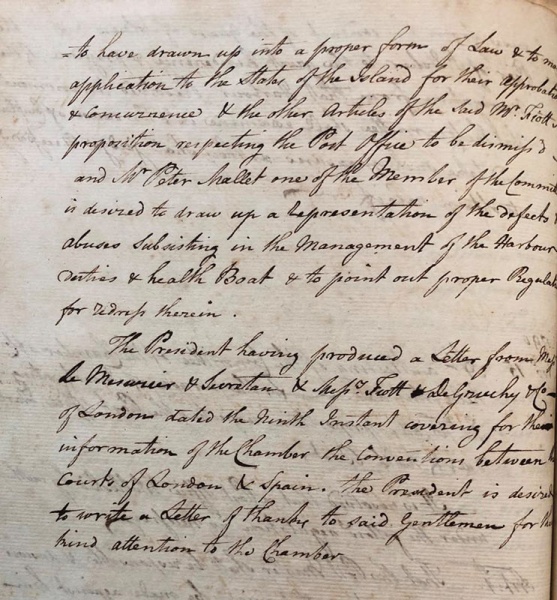 =to have drawn up into a proper form of Law & to m
application to the States of the Island for their approbati
& Concurrence & the other Articles of the said Mr. Fiott
proposition respecting the Post Office to be dismiss'd
and Mr Peter Mallet one of the Member of the Commi
is desired to draw up a Representation of the defects &
abuses Subsisting in the Management of the Harbour
duties & health Boat & to point out proper Regulat
for redress therein.
The President having produced a Letter from Mes
Le Mesurier & Secretan & Messrs. Fiott & De Gruchy & Co
of London dated the Ninth Instant covering for the
information of the Chamber the Conventions between
Courts of London & Spain. The President is desired
to write a Letter of thanks to said Gentlemen for the
kind attention to the Chamber